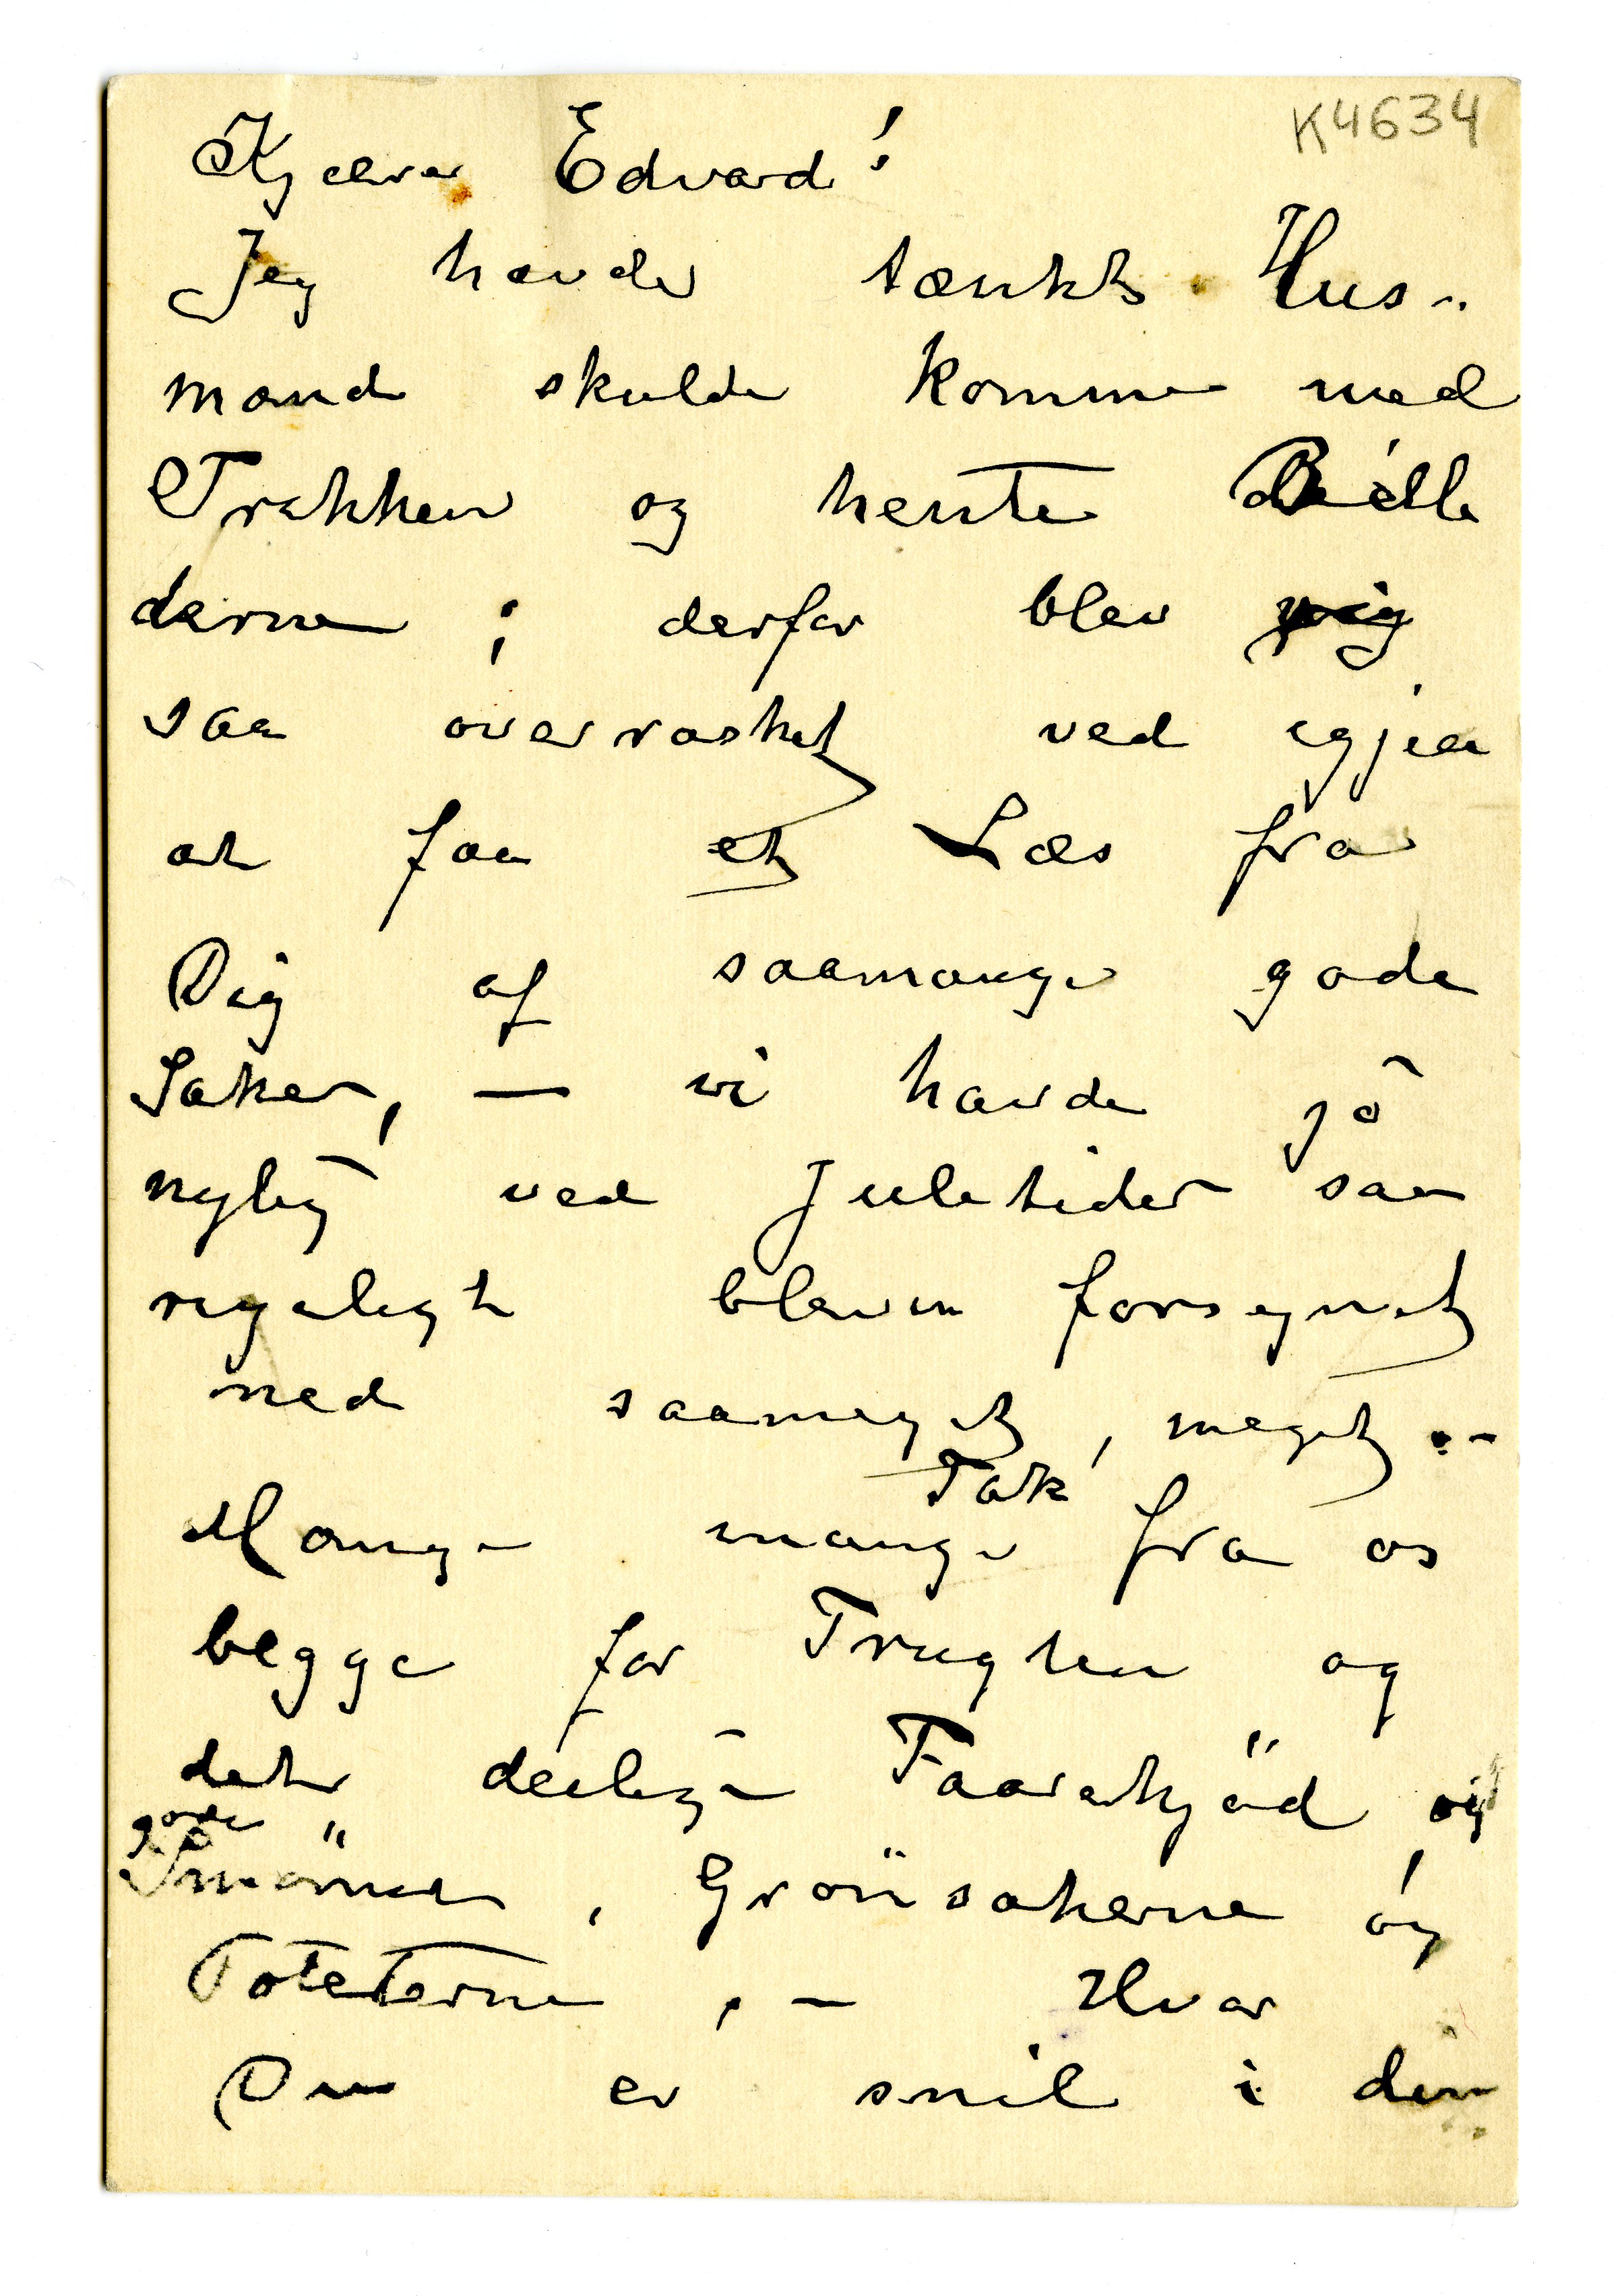 K4634
Kjære Edvard!
Jeg havde tænkt Hus-
mand skulde komme med
Trækken og hente Bille
derne; derfor blev jeg
saa overrasket ved igjen
at faa et Læs fra
Dig af saamange gode
Saker, — vi havde jo
nylig ved Juletider saa
rigeligt bleven forsynet
med saameget, meget.-
Mange mange Tak fra os
begge for Frugten og
det deilige Faarekjød og
gode Smørret, Grønsakerne og
Poteterne. - Hvor
Du er snil i din